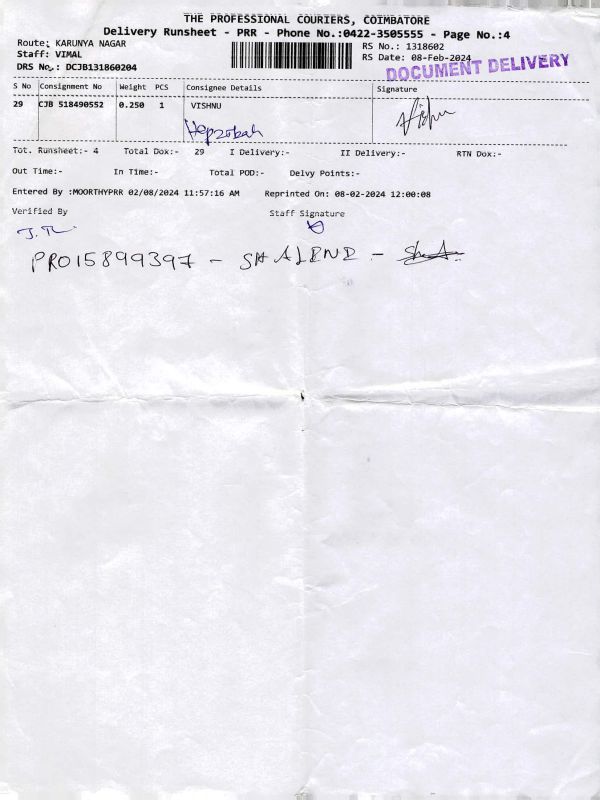 THE PROFESSIONAL COURIERS, COIMBATORE
Delivery Runsheet - PRR - Phone No.:0422-3505555 - Page No.:4
Route: KARUNYA NAGAR
RS No.: 1318602
Staff: VIMAL
RS Date: 08-Feb-2024
DRS No.: DCJB131860204
DOCUMENT DELIVERY
S No Consignment No Weight PCS Consignee Details Signature
29 CJB 518490552 0.250 1 VISHNU
Hepzobah
Tot. Runsheet:- 4 Total Dox:- 29 I Delivery:- II Delivery:- RTN Dox:-
Out Time:- In Time:- Total POD:- Delvy Points:-
Entered By :MOORTHYPRR 02/08/2024 11:57:16 AM Reprinted On: 08-02-2024 12:00:08
Verified By Staff Signature
PRO15899397 -